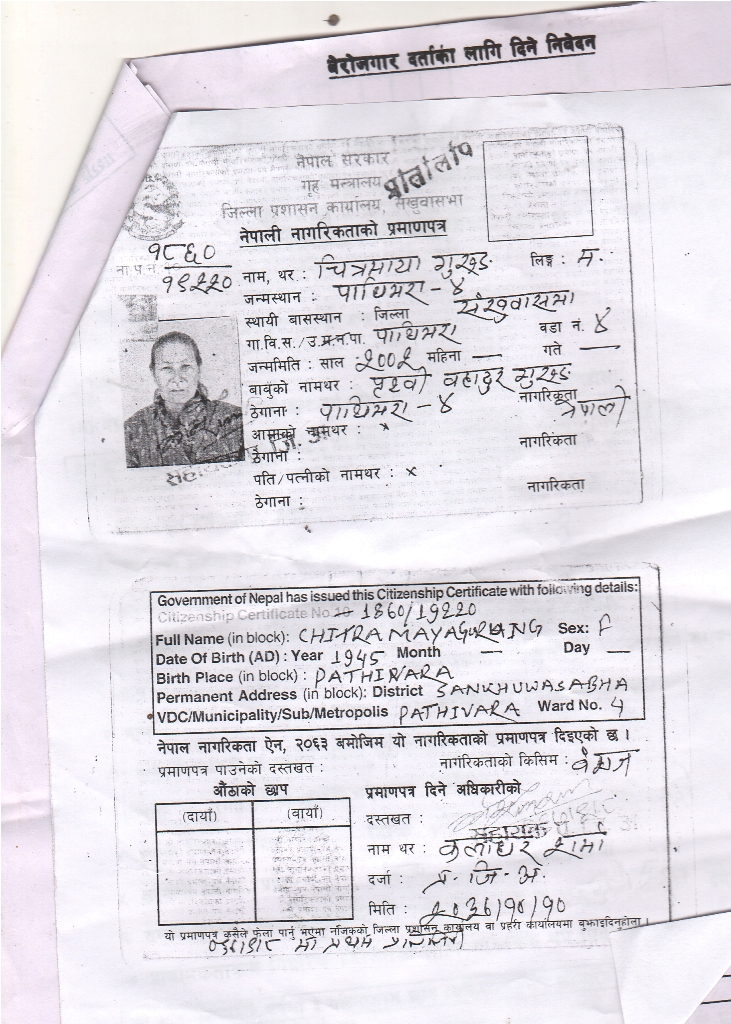 बेरोजगार दर्ताका लागि दिने निवेदन
नेपाल सरकार
गृह मन्त्रालय
प्रतिलिपि
जिल्ला प्रशासन कार्यालय, संखुवासभा
नेपाली नागरिकताको प्रमाणपत्र
ना.प्र.नं. १८६०/१९२२०
नाम, थर : चित्रमाया गुरुङ लिङ्ग : म.
जन्मस्थान : पाथिभरा - ४
स्थायी बासस्थान : जिल्ला संखुवासभा
गा.वि.स./उ.म.न.पा. पाथिभरा वडा नं. ४
जन्ममिति : साल २००२ महिना — गते —
बाबुको नामथर : पृथ्वी बहादुर गुरुङ
ठेगाना : पाथिभरा - ४ नागरिकता नेपाली
आमाको नामथर : x
ठेगाना : नागरिकता
पति/पत्नीको नामथर : x
ठेगाना : नागरिकता
Government of Nepal has issued this Citizenship Certificate with following details:
Citizenship Certificate No. 1860/19220
Full Name (in block): CHITRAMAYA GURUNG Sex: F
Date Of Birth (AD) : Year 1945 Month — Day —
Birth Place (in block) : PATHIVARA
Permanent Address (in block): District SANKHUWASABHA
VDC/Municipality/Sub/Metropolis PATHIVARA Ward No. 4
नेपाल नागरिकता ऐन, २०६३ बमोजिम यो नागरिकताको प्रमाणपत्र दिइएको छ ।
प्रमाणपत्र पाउनेको दस्तखत : नागरिकताको किसिम : वंशज
औंठाको छाप प्रमाणपत्र दिने अधिकारीको
(दायाँ) (वायाँ)
दस्तखत :
नाम थर : कलाधर शर्मा
दर्जा : प्र. जि. अ.
मिति : २०३६/१०/१०
यो प्रमाणपत्र कसैले फेला पार्नु भएमा नजिकको जिल्ला प्रशासन कार्यालय वा प्रहरी कार्यालयमा बुझाइदिनुहोला ।